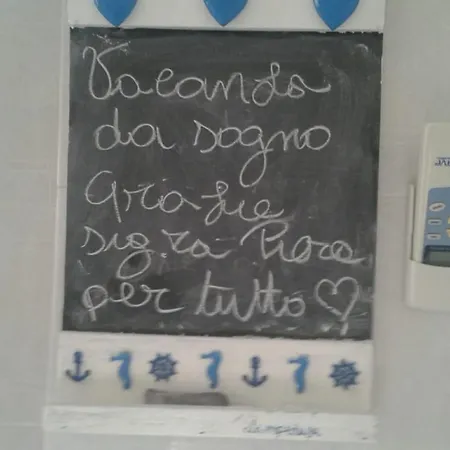 Vacanza
da sogno
Grazie
sig.ra Piera
per tutto
Lampedusa